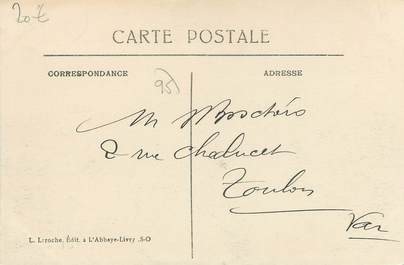 20 €
CARTE POSTALE
CORRESPONDANCE
ADRESSE
95
M
2 rue Chalucet
Toulon
Var
L. Laroche, Édit. à L'Abbaye-Livry S-O